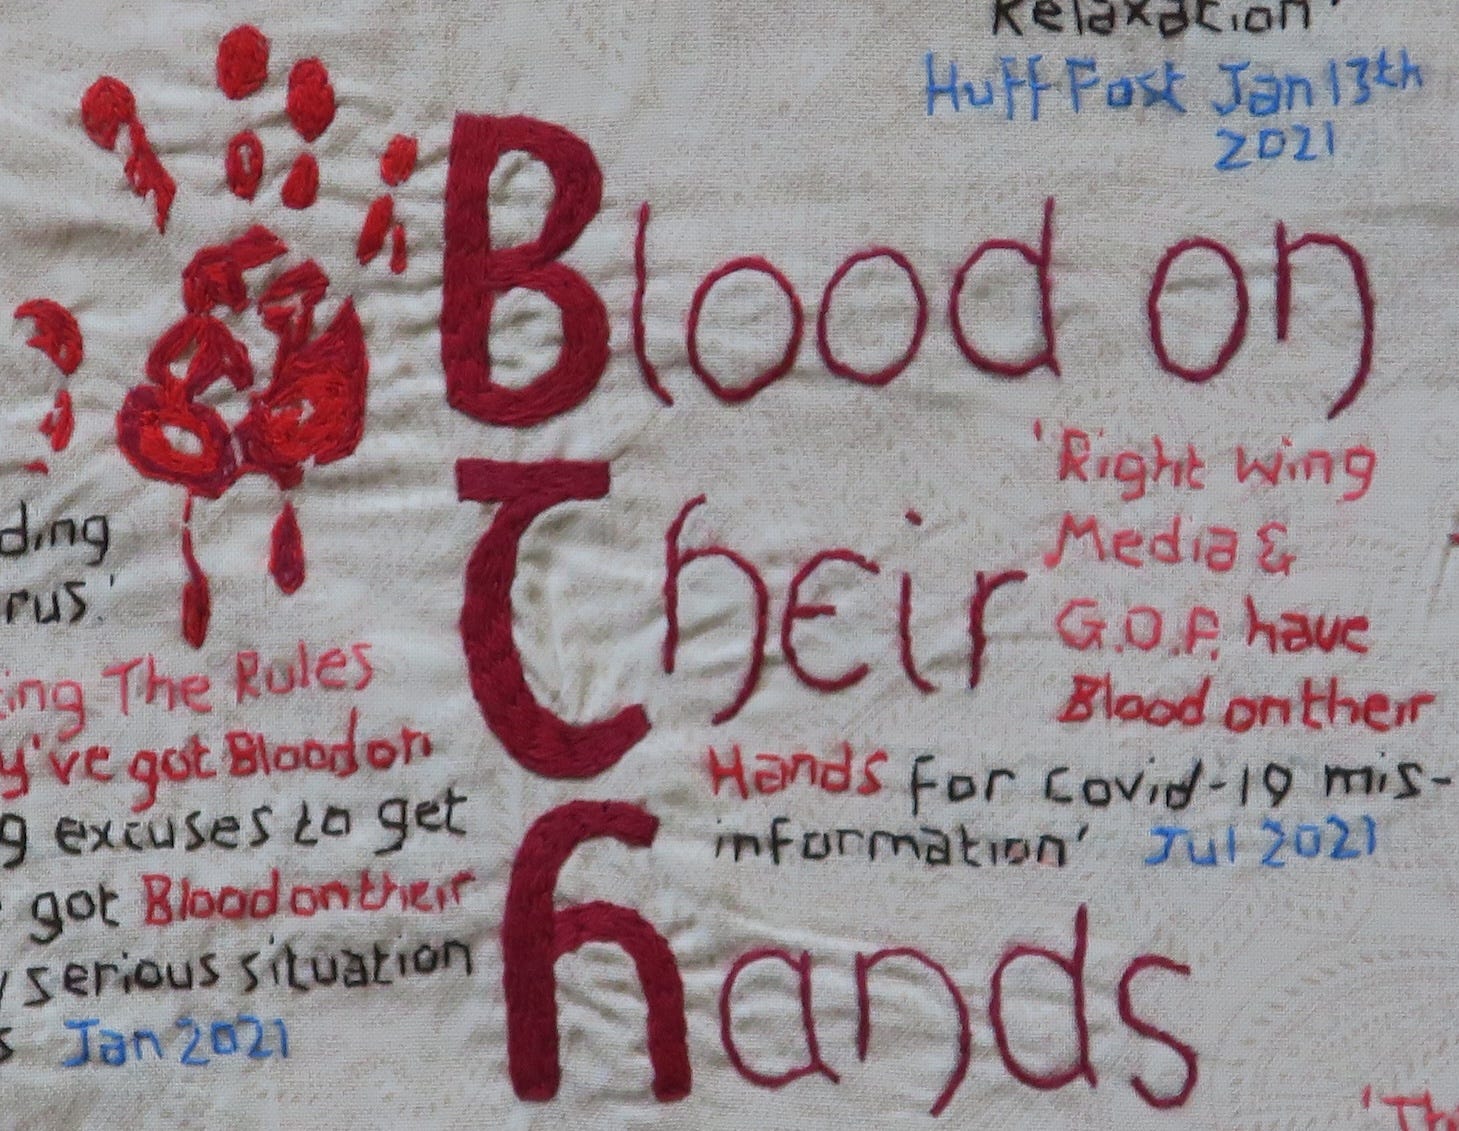 Relaxation'
Huff Post Jan 13th
2021
Blood on
Their
hands
'Right wing
Media &
G.O.P. have
Blood on their
Hands for Covid-19 mis-
information' Jul 2021
ding
rus.'
ing The Rules
y've got Blood on
g excuses to get
got Blood on their
y serious situation
s Jan 2021
'Th